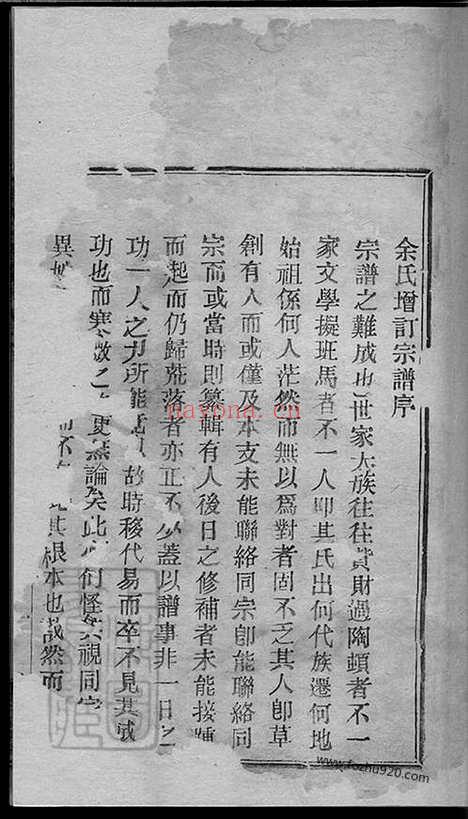 余氏增訂宗譜序
宗譜之難成也世家大族往往貲財過陶頓者不一
家文學擬班馬者不一人叩其氏出何代族遷何地
始祖係何人茫然而無以爲對者固不乏其人卽草
創有人而或僅及本支未能聯絡同宗卽能聯絡同
宗而或當時則纂輯有人後日之修補者未能接踵
而起而仍歸荒落者亦正不少蓋以譜事非一日之
功一人之力所能 故時移代易而卒不見其成
功也而寒 之 更無論矣此 何怪其視同宗
異 不 其根本也哉然而
nayona.cn
www.fozhu920.com